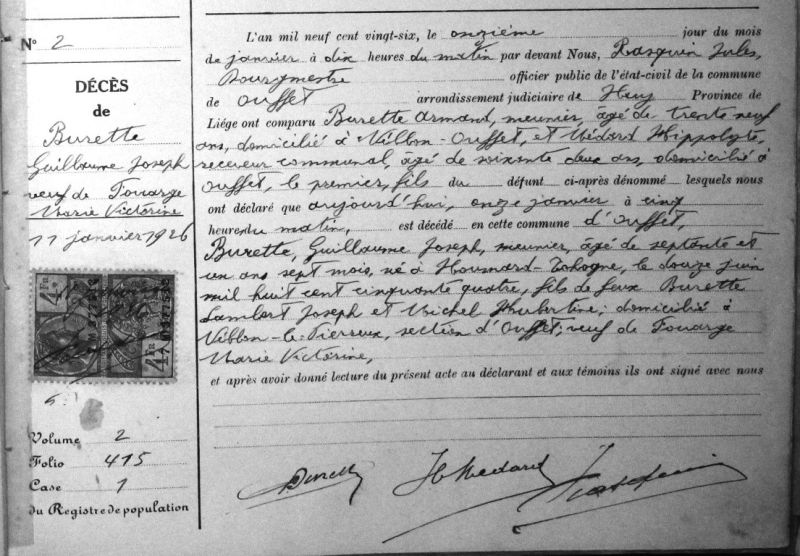 N° 2
DÉCÈS
de
Burette
Guillaume Joseph
veuf de Touarge
Marie Victorine
11 janvier 1926
Volume 2
Folio 415
Case 1
du Registre de population
L'an mil neuf cent vingt-six, le onzième jour du mois
de janvier à dix heures du matin par devant Nous, Rasquin Jules,
Bourgmestre officier public de l'état-civil de la commune
de Ouffet arrondissement judiciaire de Huy Province de
Liége ont comparu Burette Armand, meunier, âgé de trente neuf
ans, domicilié à Ouffet, et Médard Hippolyte,
receveur communal, âgé de soixante deux ans, domicilié à
Ouffet, le premier, fils du défunt ci-après dénommé lesquels nous
ont déclaré que aujourd'hui, onze janvier à cinq
heures du matin, est décédé en cette commune d'Ouffet,
Burette, Guillaume Joseph, meunier, âgé de septante et
un ans sept mois, né à Tohogne, le douze juin
mil huit cent cinquante quatre, fils de feux Burette
Lambert Joseph et Michel Hubertine; domicilié à
section d'Ouffet; veuf de Touarge
Marie Victorine,
et après avoir donné lecture du présent acte au déclarant et aux témoins ils ont signé avec nous
H Medard